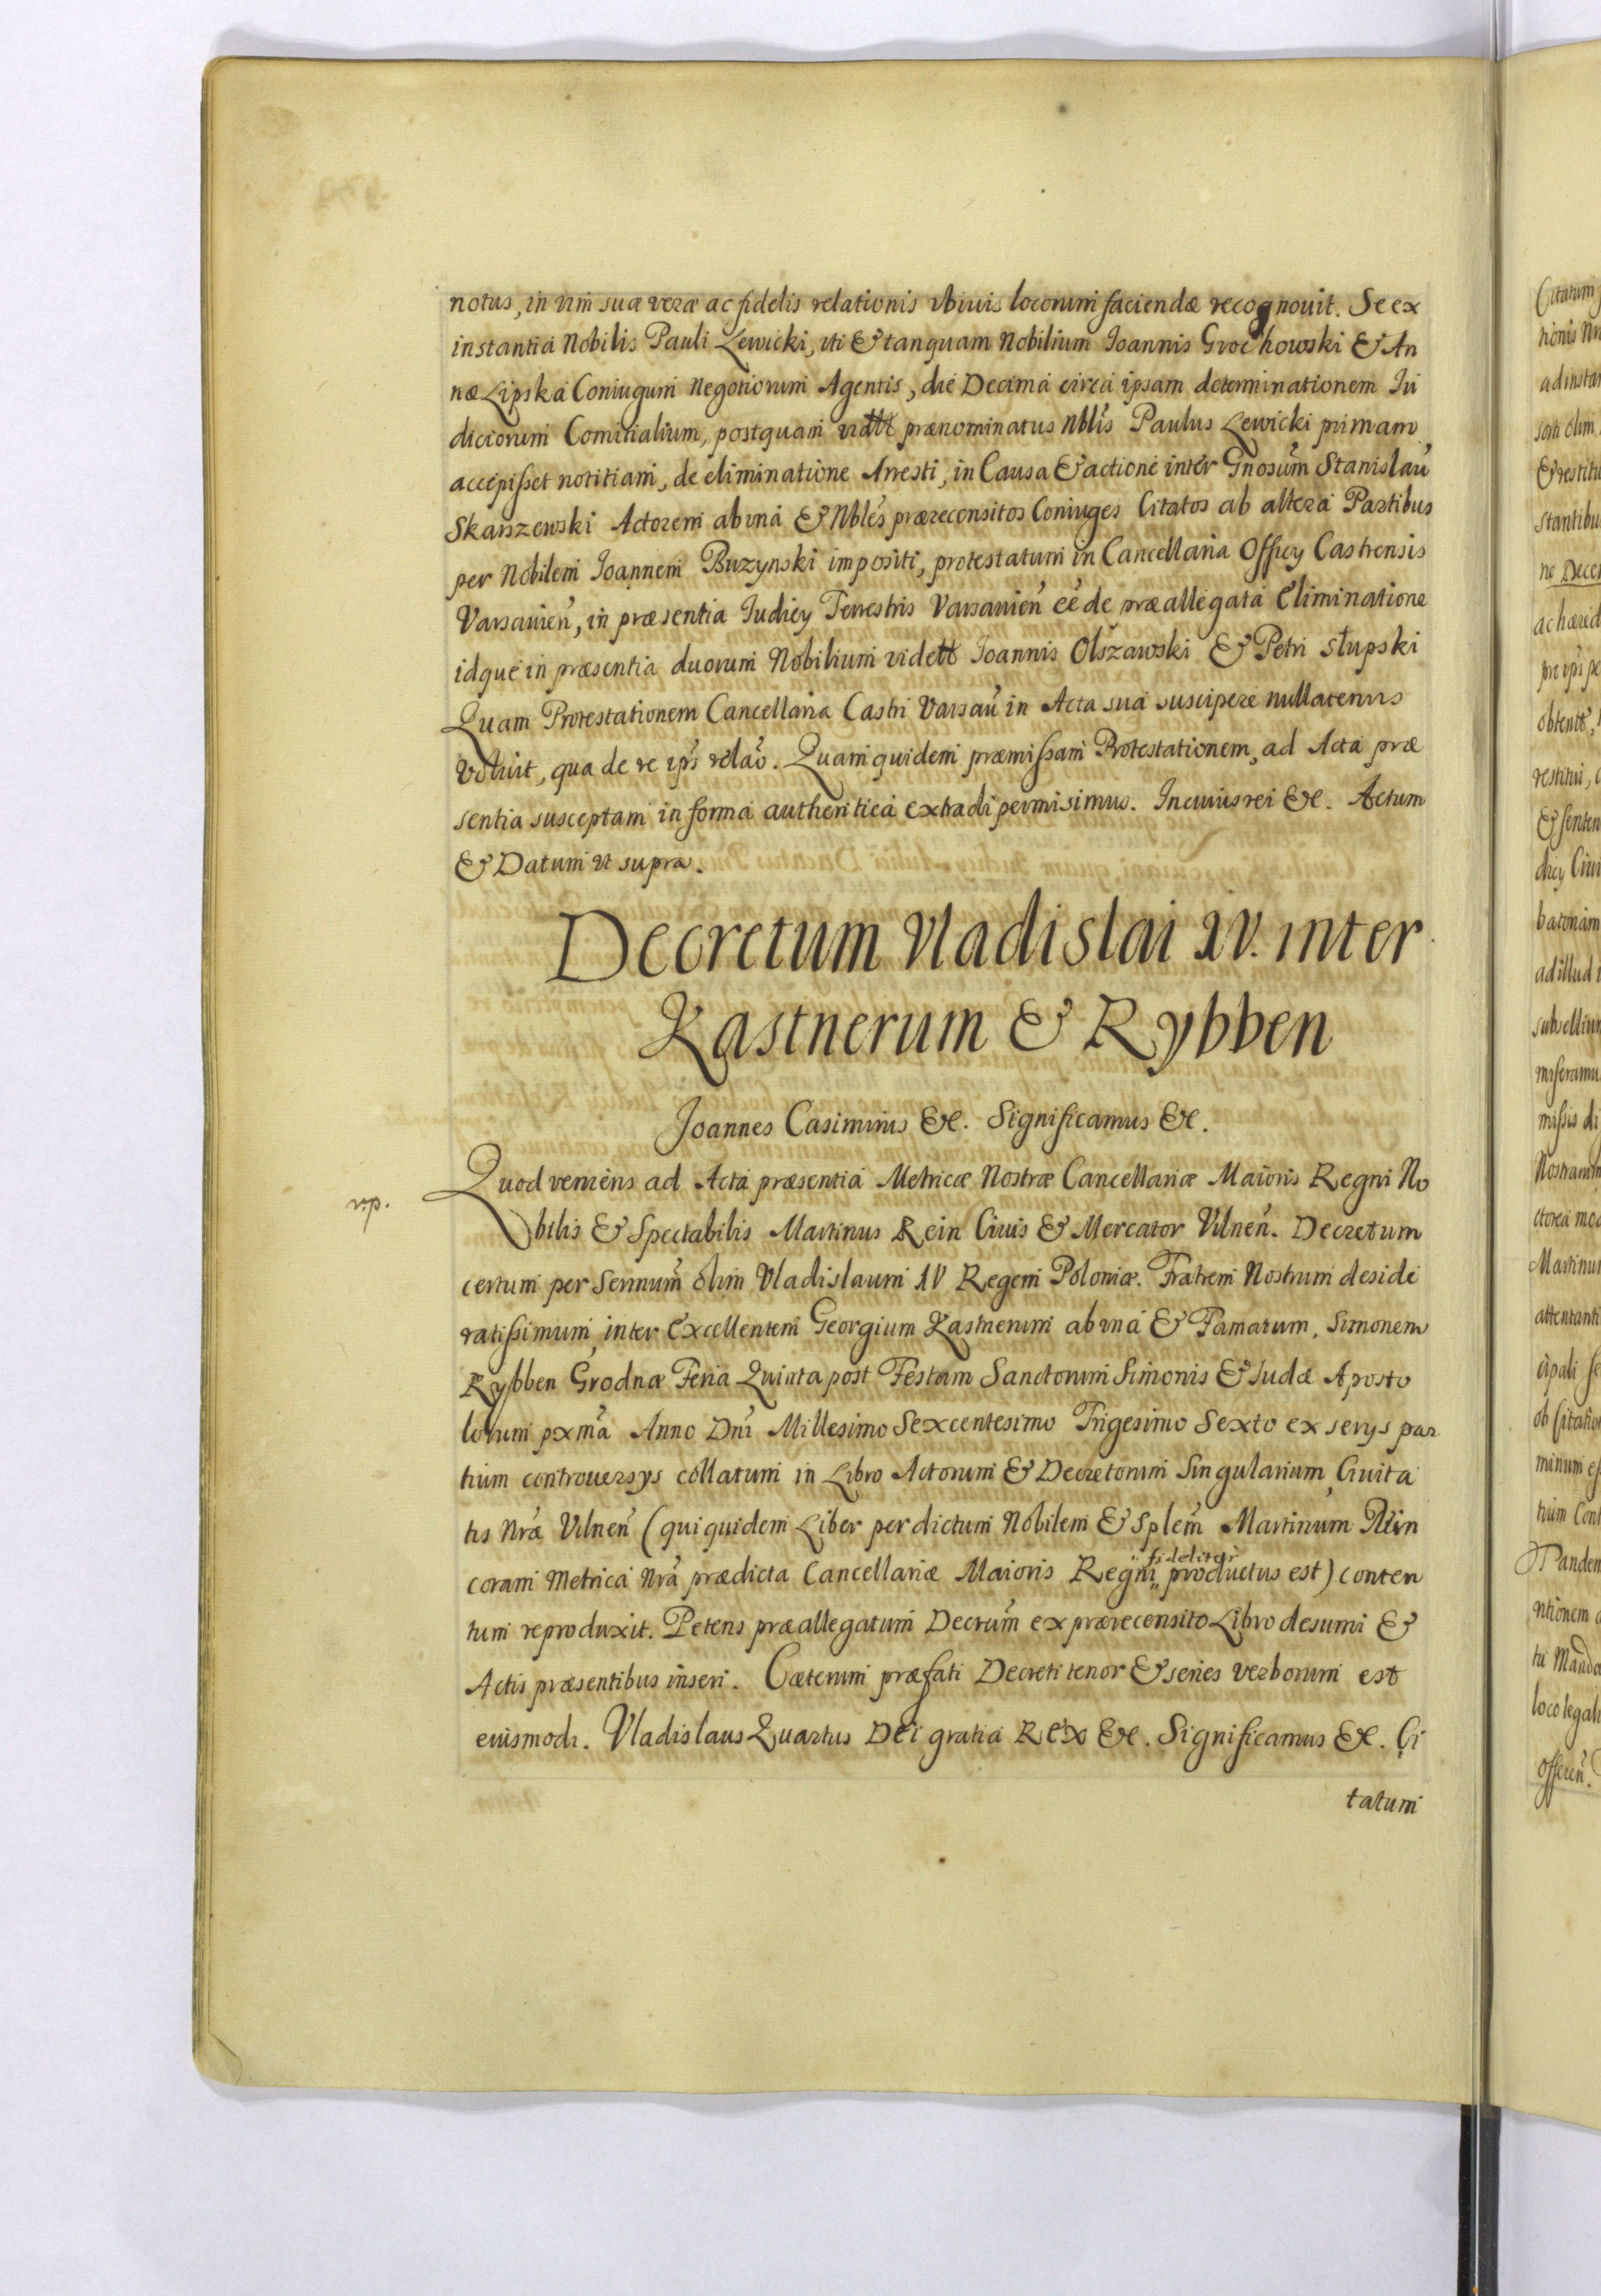 notus, in vim suæ veræ ac fidelis relationis vbiuis locorum faciendæ recognouit. Se ex
instantia Nobilis Pauli Lewicki, vti & tanquam Nobilium Ioannis Grochowski & An
næ Lipska Coniugum Negotiorum Agentis, die Decima circa ipsam determinationem Iu
diciorum Comitialium, postquam vidtt prænominatus Nblis Paulus Lewicki primam
accepisset notitiam, de eliminatione Arresti, in Causa & actione inter Gnosum Stanislau
Skarszewski Actorem ab vna & Nbles prærecensitos Coniuges Citatos ab altera Partibus
per Nobilem Ioannem Buzynski impositi, protestatum in Cancellaria Officy Castrensis
Varsauien, in præsentia Iudicy Terrestris Varsauien eé de præallegata Eliminatione
idque in præsentia duorum Nobilium vidett Ioannis Olszawski & Petri Słupski
Quam Protestationem Cancellaria Castri Varsau in Acta sua suscipere nullatenus
voluit, qua de re ips relao. Quam quidem præmissam Protestationem, ad Acta præ
sentia susceptam in forma authentica extradi permisimus. In cuius rei &c. Actum
& Datum vt supra.
Decretum Vladislai IV. inter
Kastnerum & Rybben
Joannes Casimirus &c. Significamus &c.
Quod veniens ad Acta præsentia Metricæ Nostræ Cancellariæ Maioris Regni No
bilis & Spectabilis Martinus Rein Ciuis & Mercator Vilnen. Decretum
certum per Sernnum olim Vladislaum IV Regem Poloniæ. Fratrem Nostrum deside
ratissimum, inter Excellentem Georgium Kastnerum ab vna & Famatum, Simonem
Rybben Grodnæ Feria Quinta post Festum Sanctorum Simonis & Iudæ Aposto
lorum pxma Anno Dni Millesimo Sexcentesimo Trigesimo Sexto ex serys par
tium controuersys collatum in Libro Actorum & Decretorum Singularium Ciuita
tis Nræ Vilnen (qui quidem Liber per dictum Nobilem & Splem Martinum Rein
coram Metrica Nra prædicta Cancellariæ Maioris Regni fideliter productus est) conten
tum reproduxit. Petens præallegatum Decrum ex prærecensito Libro desumi &
Actis præsentibus inseri. Cæterum præfati Decreti tenor & series verborum est
eiusmodi. Vladislaus Quartus Dei gratia Rex &c. Significamus &c. Ci
tatum